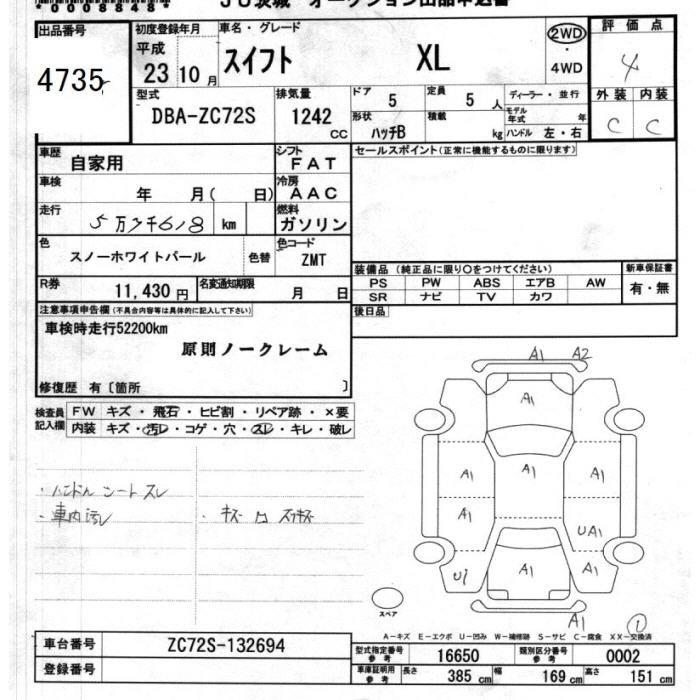 *0008848*
JU茨城 オークション出品申込書
出品番号
4735
初度登録年月
平成
23年10月
車名・グレード
スイフト XL
2WD
4WD
評価点
4
外装 内装
C C
型式
DBA-ZC72S
排気量
1242
CC
ドア
5
定員
5人
ディーラー・並行
モデル年式 年
形状
ハッチB
積載
kg
ハンドル 左・右
車歴
自家用
シフト
FAT
セールスポイント(正常に機能するものに限ります)
車検
年 月( 日)
冷房
AAC
走行
5万2千618 km
燃料
ガソリン
色
スノーホワイトパール
色替
色コード
ZMT
R券
11,430円
名変通知期限
月 日
装備品(純正品に限り〇をつけてください)
新車保証書
PS PW ABS エアB AW
有・無
SR ナビ TV カワ
後日品
注意事項申告欄(不具合内容等は具体的に記入して下さい)
車検時走行52200km
原則ノークレーム
修復歴 有〔箇所 〕
検査員記入欄
FW キズ・飛石・ヒビ割・リペア跡・×要
内装 キズ・汚レ・コゲ・穴・スレ・キレ・破レ
・ハンドル シート スレ
・車内汚レ
A1 A2
A1
A1 A1 A1
A1 UA1
U1 A1 A1
A1
①
スペア
A-キズ E-エクボ U-凹み W-補修跡 S-サビ C-腐食 XX-交換済
車台番号
ZC72S-132694
登録番号
型式指定番号 参考
16650
類別区分番号 参考
0002
車庫証明用 参考
長さ 385cm 幅 169cm 高さ 151cm